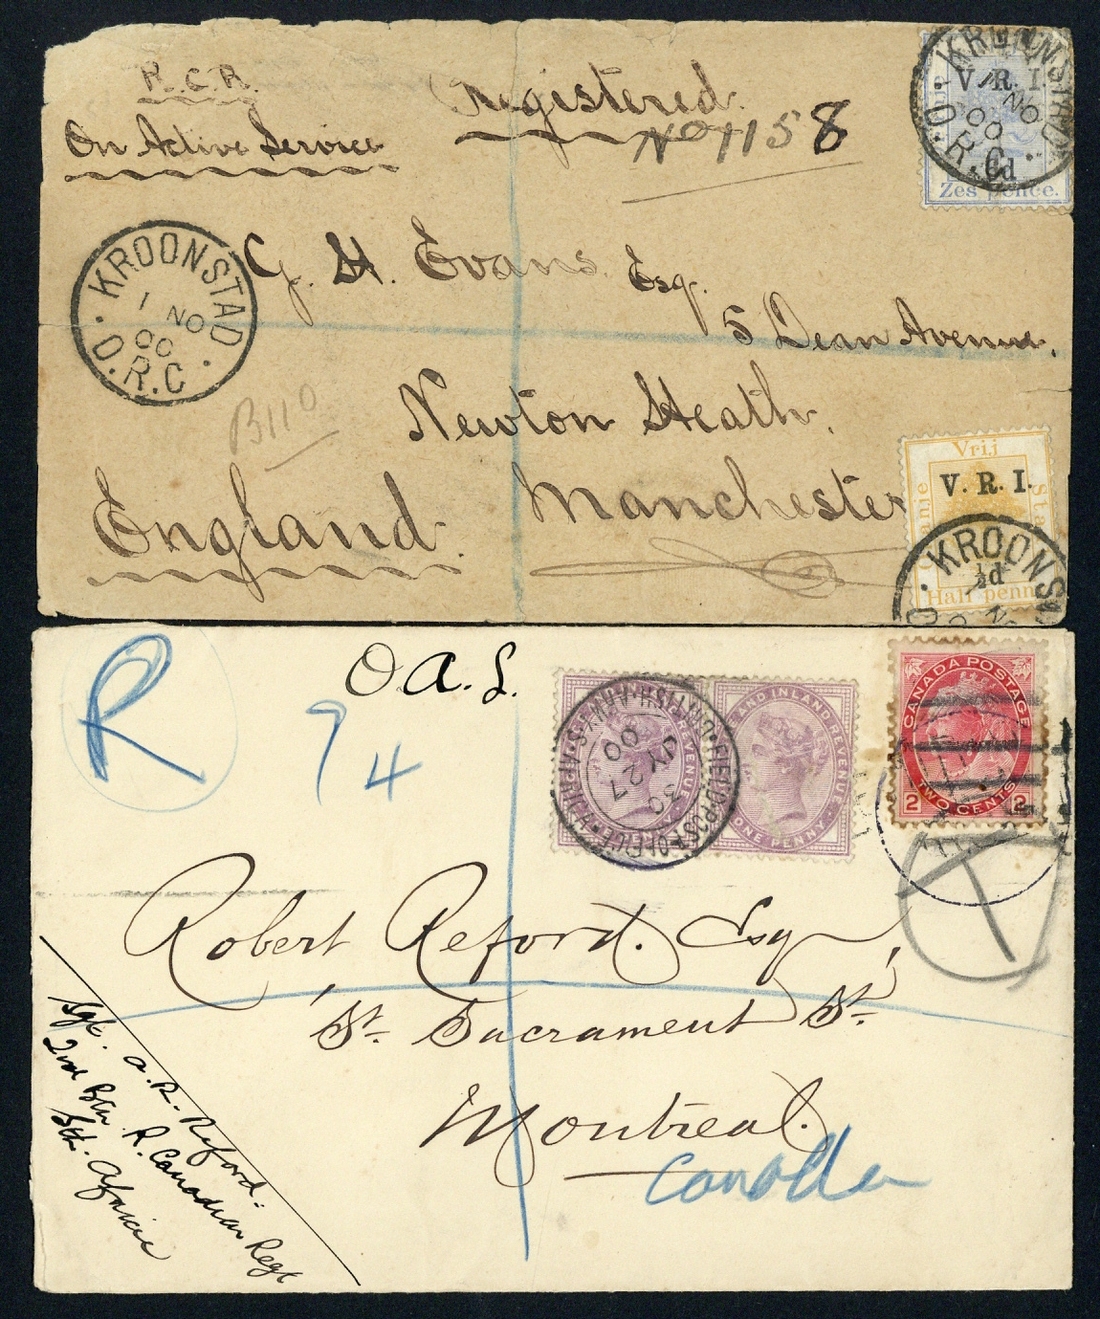 R.C.R.
On Active Service
Registered.
No 1158
KROONSTAD
V.R.I.
1 NO
00
O.R.C.
6d
Zes pence.
KROONSTAD
1 NO
00
O.R.C
G. H. Evans Esq.
5 Dean Avenue.
Newton Heath.
Manchester
England.
B110
Vrij
V. R. I.
½d
Half penn
KROONS
R
94
O.A.S.
FIELD POST OFFICE BRITISH ARMY S. AFRICA
JY 27
00
30
INLAND REVENUE
ONE PENNY
CANADA POSTAGE
2 2
TWO CENTS
T
Robert Reford. Esq
St. Sacrament St.
Montreal.
Canada
Sgt. A. R. Reford.
2nd Btn R. Canadian Regt
Sth. Africa